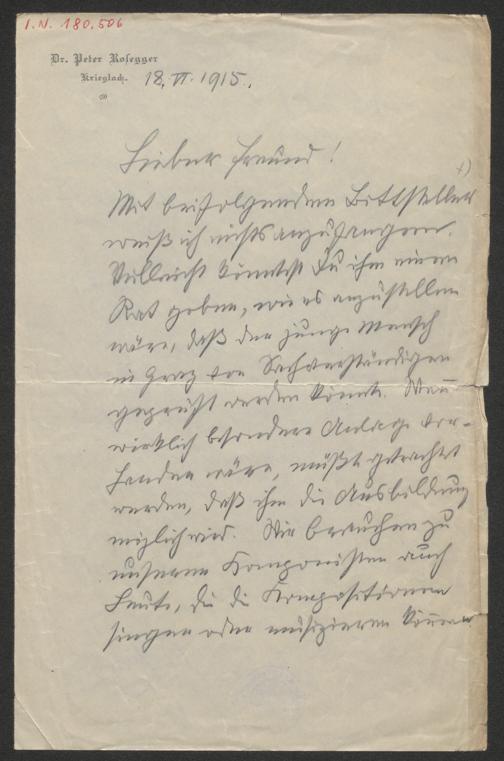 I.N. 180.506
Dr. Peter Rosegger
Krieglach. 18. VI. 1915.
Lieber Freund!
+)
Mit beifolgendem Bittsteller
weiß ich nichts anzufangen.
Vielleicht könntest Du ihm einen
Rat geben, wie es anzustellen
wäre, daß der junge Mensch
in Graz von Sachverständigen
geprüft werden könnte. Wenn
wirklich besondere Anlage vor-
handen wäre, müßte getrachtet
werden, daß ihm die Ausbildung
möglich wird. Wir brauchen zu
unseren Komponisten auch
Leute, die die Kompositionen
singen oder musizieren können